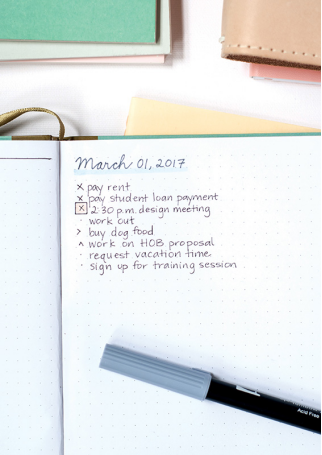 March 01, 2017
x pay rent
x pay student loan payment
x 2:30 p.m. design meeting
· work out
> buy dog food
^ work on HOB proposal
· request vacation time
· sign up for training session
Acid Free